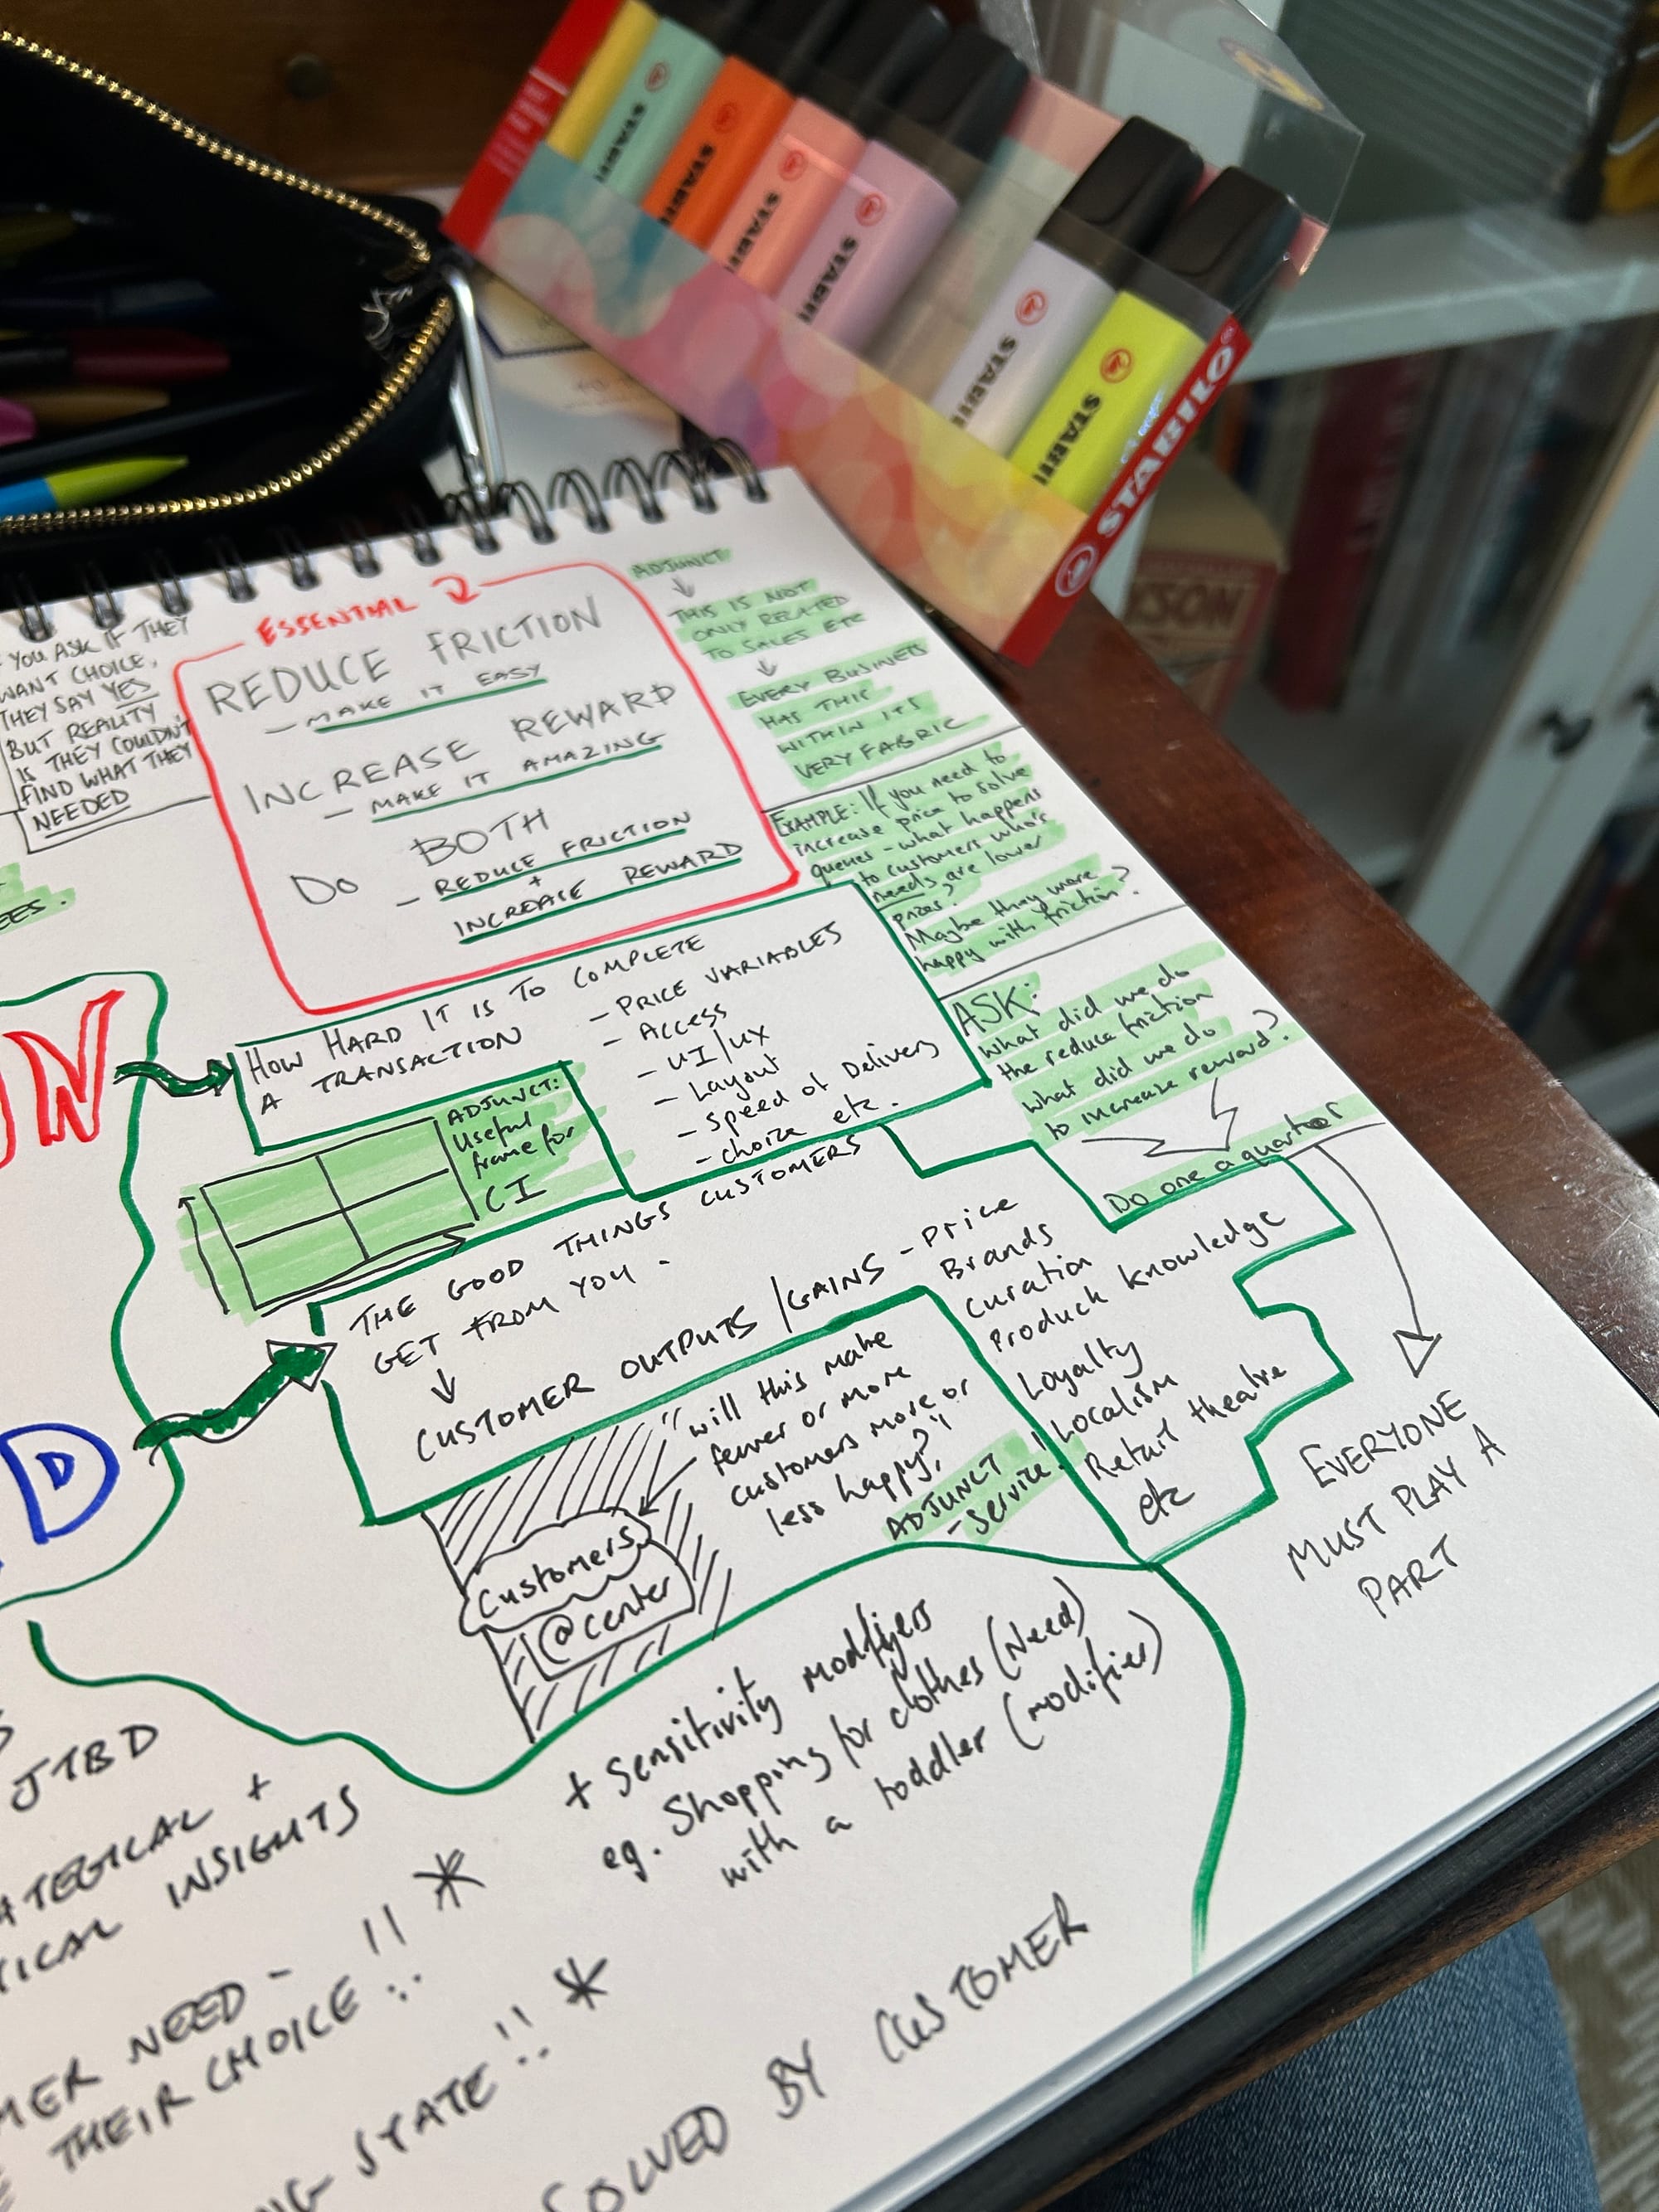 STABILO
STABI
STABI
STABI
STABI
STABI
STABI
STABILO
YSON
YOU ASK IF THEY
WANT CHOICE,
THEY SAY YES
BUT REALITY
IS THEY COULDN'T
FIND WHAT THEY
NEEDED
EES.
ESSENTIAL
REDUCE FRICTION
- MAKE IT EASY
INCREASE REWARD
- MAKE IT AMAZING
DO BOTH
- REDUCE FRICTION
+
INCREASE REWARD
ADJUNCT
THIS IS NOT
ONLY RELATED
TO SALES ETC
EVERY BUSINESS
HAS THIS
WITHIN ITS
VERY FABRIC
EXAMPLE: If you need to
increase price to solve
queues - what happens
to customers who's
needs are lower
prices?
Maybe they more
happy with friction?
ASK:
What did we do
the reduce friction
what did we do
to increase reward?
Do one a quarter
EVERYONE
MUST PLAY A
PART
N
HOW HARD IT IS TO COMPLETE
A TRANSACTION
- PRICE VARIABLES
- ACCESS
- UI/UX
- Layout
- Speed of Delivery
- choice etc.
ADJUNCT:
Useful
frame for
CI
D
THE GOOD THINGS CUSTOMERS
GET FROM YOU.
CUSTOMER OUTPUTS /GAINS - Price
Brands
Curation
Product knowledge
Loyalty
Localism
Retail theatre
etc
"will this make
fewer or more
customers more or
less happy?"
ADJUNCT
- service!
Customers
@center
+ Sensitivity modifiers
eg. Shopping for clothes (Need)
with a toddler (modifier)
JTBD
ATEGICAL +
TICAL INSIGHTS
MER NEED - !! *
THEIR CHOICE!!
NG STATE!! *
SOLVED BY CUSTOMER